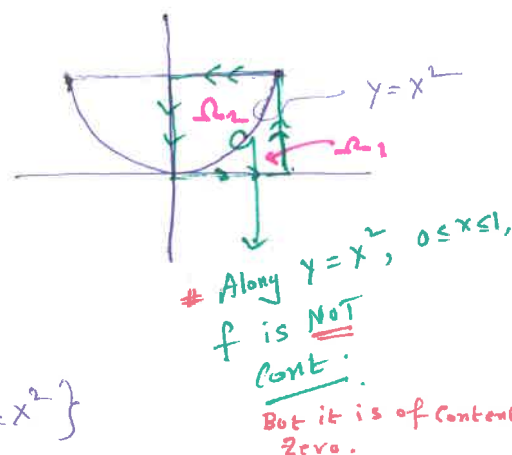 Ω₂
y = x²
Ω₁
# Along y = x², 0 ≤ x ≤ 1,
f is NOT
Cont.
But it is of Content
Zero.
= x² }